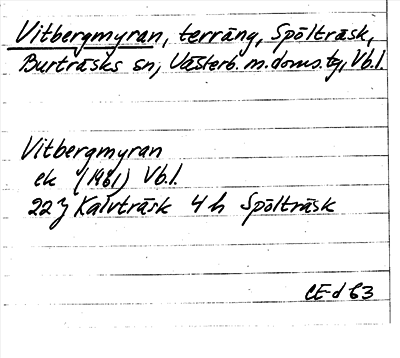 Vitbergmyran, terräng, Spölträsk,
Burträsks sn, Västerb. m. doms.tg, Vb.l.
Vitbergmyran
ek (1961) Vb.l.
22J Kalvträsk 4h Spölträsk
CE-d 63